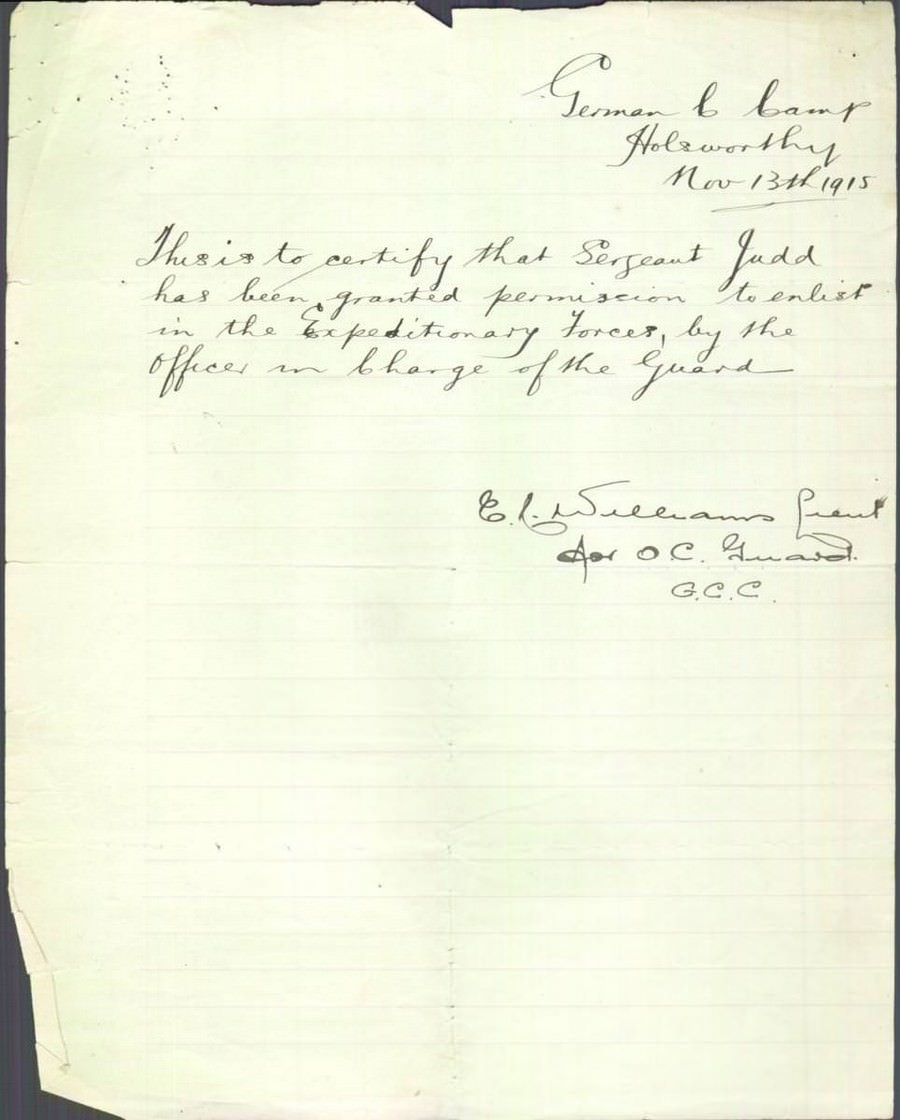 German C Camp
Holsworthy
Nov 13th 1915
This is to certify that Sergeant Judd
has been granted permission to enlist
in the Expeditionary Forces, by the
Officer in Charge of the Guard
E. C. Williams Lieut
for O.C. Guard.
G.C.C.